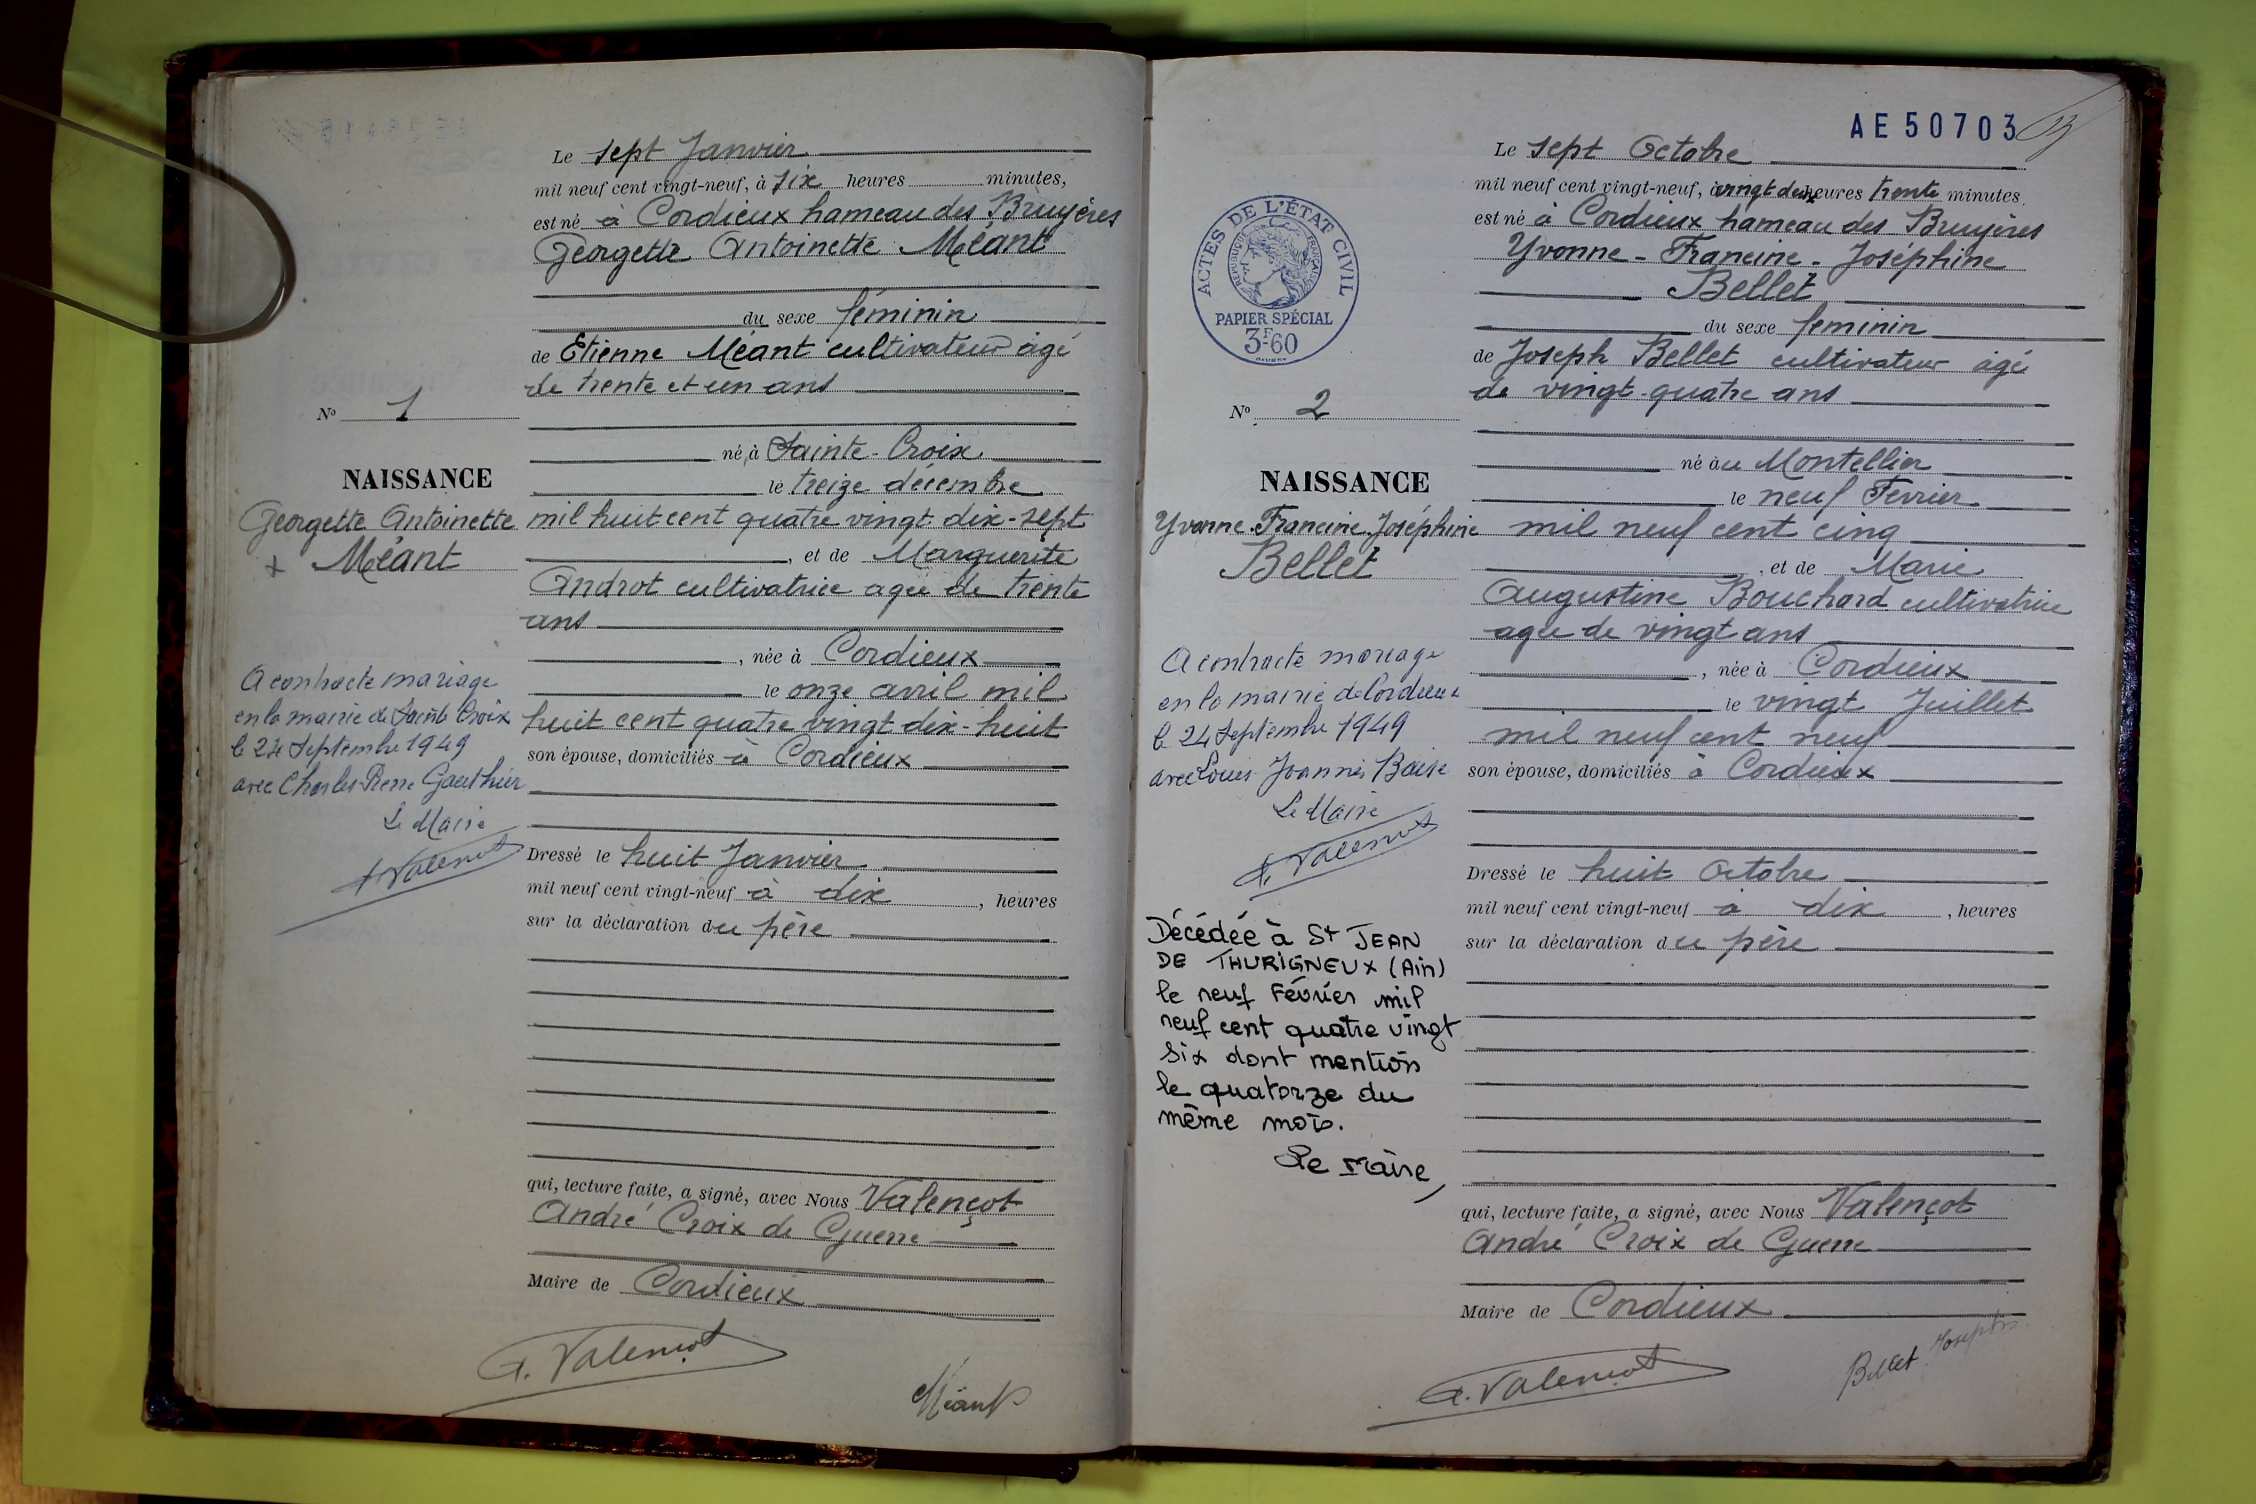 Le sept Janvier
mil neuf cent vingt-neuf, à six heures minutes,
est né à Cordieux hameau des Bruyères
Georgette Antoinette Méant
du sexe féminin
de Etienne Méant cultivateur agé
de trente et un ans
No 1
né à Sainte-Croix
NAISSANCE
le treize décembre
Georgette Antoinette
mil huit cent quatre vingt dix-sept
Méant
, et de Marguerite
Androt cultivatrice agée de trente
ans
, née à Cordieux
A contracté mariage
le onze avril mil
en la mairie de Sainte Croix
huit cent quatre vingt dix-huit
le 24 Septembre 1949
son épouse, domiciliés à Cordieux
avec Charles Pierre Gauthier
Le Maire
A. Valençot
Dressé le huit Janvier
mil neuf cent vingt-neuf à dix , heures
sur la déclaration du père
qui, lecture faite, a signé, avec Nous Valençot
André Croix de Guerre
Maire de Cordieux
A. Valençot
Méant
AE 50703
Le sept Octobre
mil neuf cent vingt-neuf, à vingt deux heures trente minutes,
est né à Cordieux hameau des Bruyères
Yvonne - Francine - Joséphine
Bellet
ACTES DE L'ÉTAT CIVIL
RÉPUBLIQUE FRANÇAISE
PAPIER SPÉCIAL
3F-60
du sexe féminin
de Joseph Bellet cultivateur agé
de vingt-quatre ans
No 2
né au Montellier
NAISSANCE
le neuf Fevrier
Yvonne-Francine-Joséphine
mil neuf cent cinq
Bellet
, et de Marie
Augustine Bouchard cultivatrice
agée de vingt ans
, née à Cordieux
A contracté mariage
le vingt Juillet
en la mairie de Cordieux
mil neuf cent neuf
le 24 Septembre 1949
son épouse, domiciliés à Cordieux
avec Louis Joannès
Le Maire
A. Valençot
Dressé le huit Octobre
mil neuf cent vingt-neuf à dix , heures
sur la déclaration du père
Décédée à St JEAN
DE THURIGNEUX (Ain)
le neuf Février mil
neuf cent quatre vingt
six dont mention
le quatorze du
même mois.
Le Maire,
qui, lecture faite, a signé, avec Nous Valençot
André Croix de Guerre
Maire de Cordieux
A. Valençot
Bellet Joseph